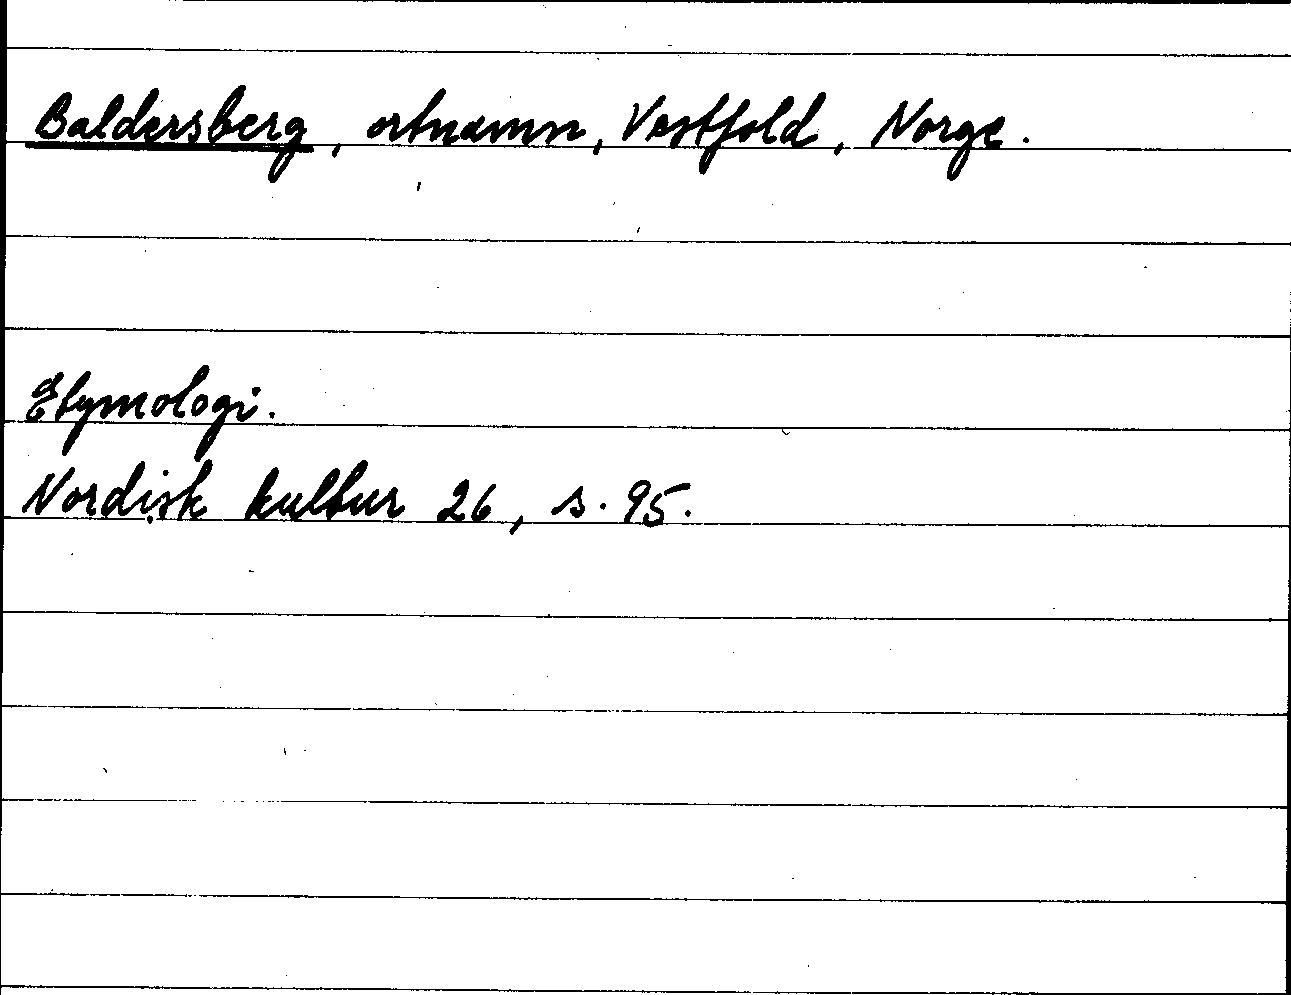 Baldersberg, ortnamn, Vestfold, Norge.
Etymologi.
Nordisk kultur 26, s. 95.